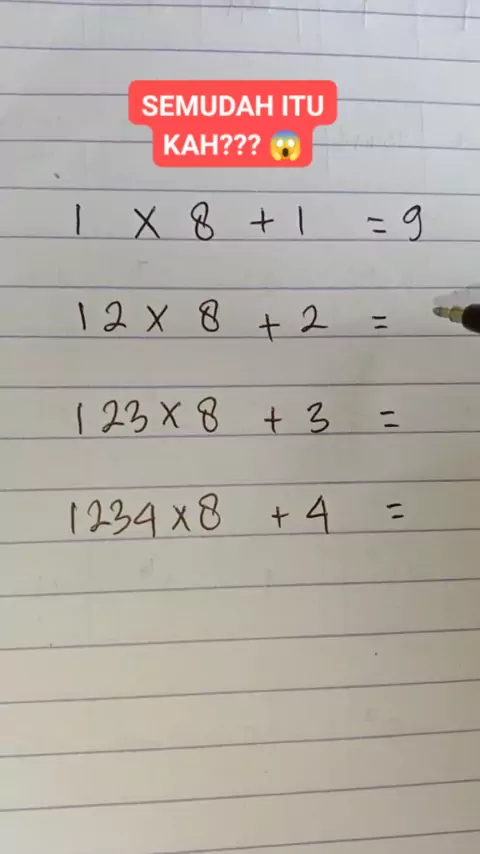 SEMUDAH ITU
KAH??? 😱
1 x 8 + 1 = 9
12 x 8 + 2 =
123 x 8 + 3 =
1234 x 8 + 4 =